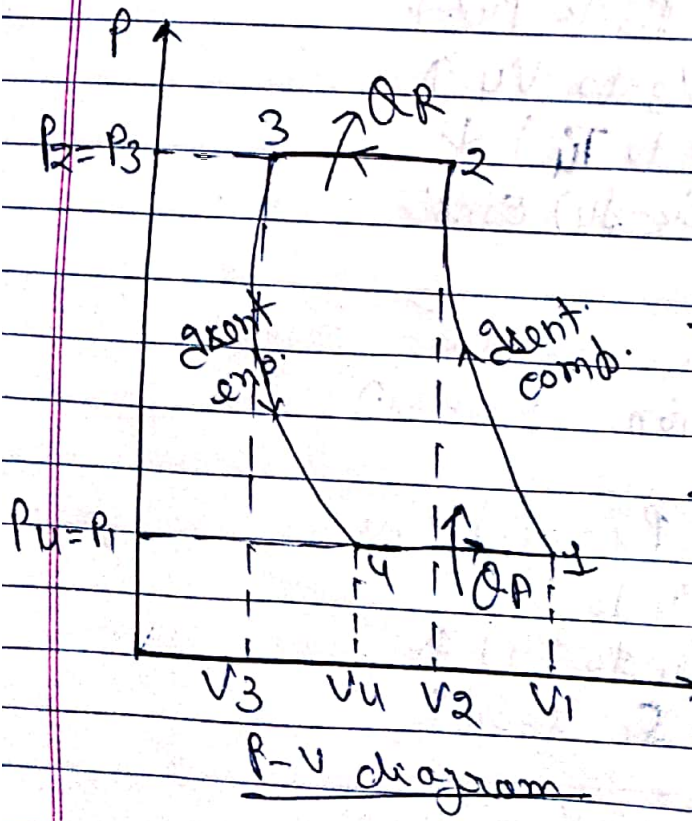 P
QR
3
P2=P3
2
isent
exp.
isent.
comp.
P4=P1
4
QA
1
V3 V4 V2 V1
P-V diagram